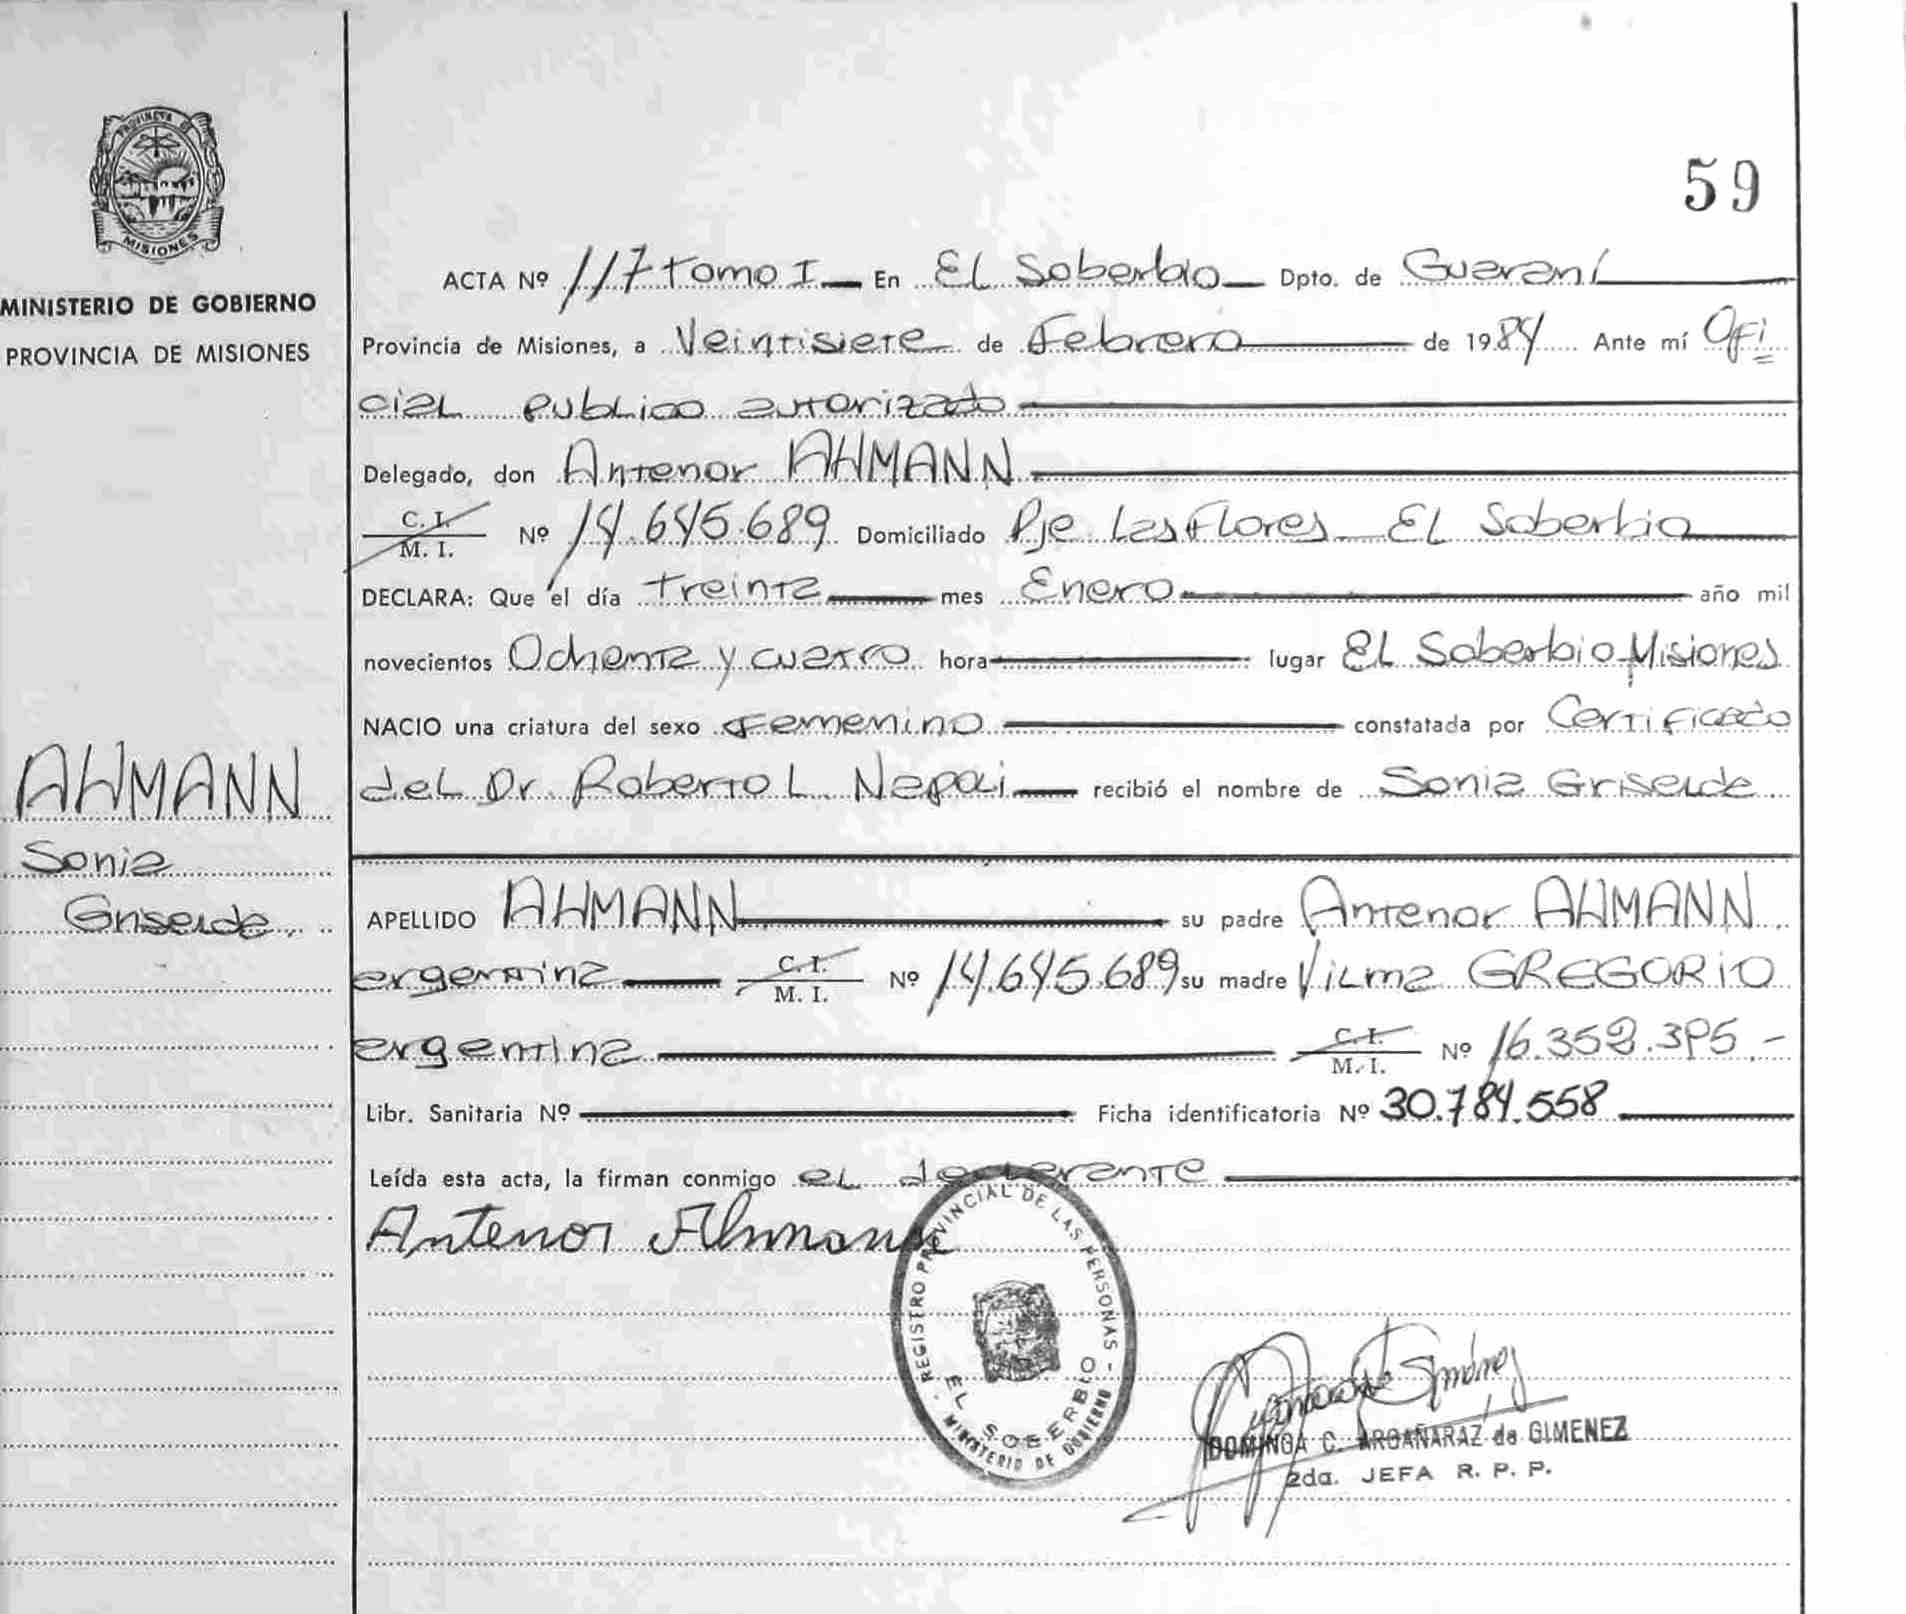 PROVINCIA DE
MISIONES
MINISTERIO DE GOBIERNO
PROVINCIA DE MISIONES
59
ACTA Nº 117 tomo I En El Soberbio Dpto. de Guaraní
Provincia de Misiones, a Veintisiete de Febrero de 1984 Ante mí Ofi
cial publico autorizado
Delegado, don Antenor AHMANN
C. I.
M. I. Nº 14.645.689 Domiciliado Pje Las Flores El Soberbio
DECLARA: Que el día treinta mes Enero año mil
novecientos Ochenta y cuatro hora lugar El Soberbio Misiones
NACIO una criatura del sexo Femenino constatada por Certificado
del Dr. Roberto L. Napoli recibió el nombre de Sonia Griselde
AHMANN
Sonia
Griselde
APELLIDO AHMANN su padre Antenor AHMANN
argentina C. I.
M. I. Nº 14.645.689 su madre Vilma GREGORIO
argentina C. I.
M. I. Nº 16.352.395.-
Libr. Sanitaria Nº Ficha identificatoria Nº 30.784.558
Leída esta acta, la firman conmigo el declarante
Antenor Ahmann
REGISTRO PROVINCIAL DE LAS PERSONAS -
EL SOBERBIO
MINISTERIO DE GOBIERNO
DOMINGA C. ARGAÑARAZ de GIMENEZ
2da. JEFA R. P. P.